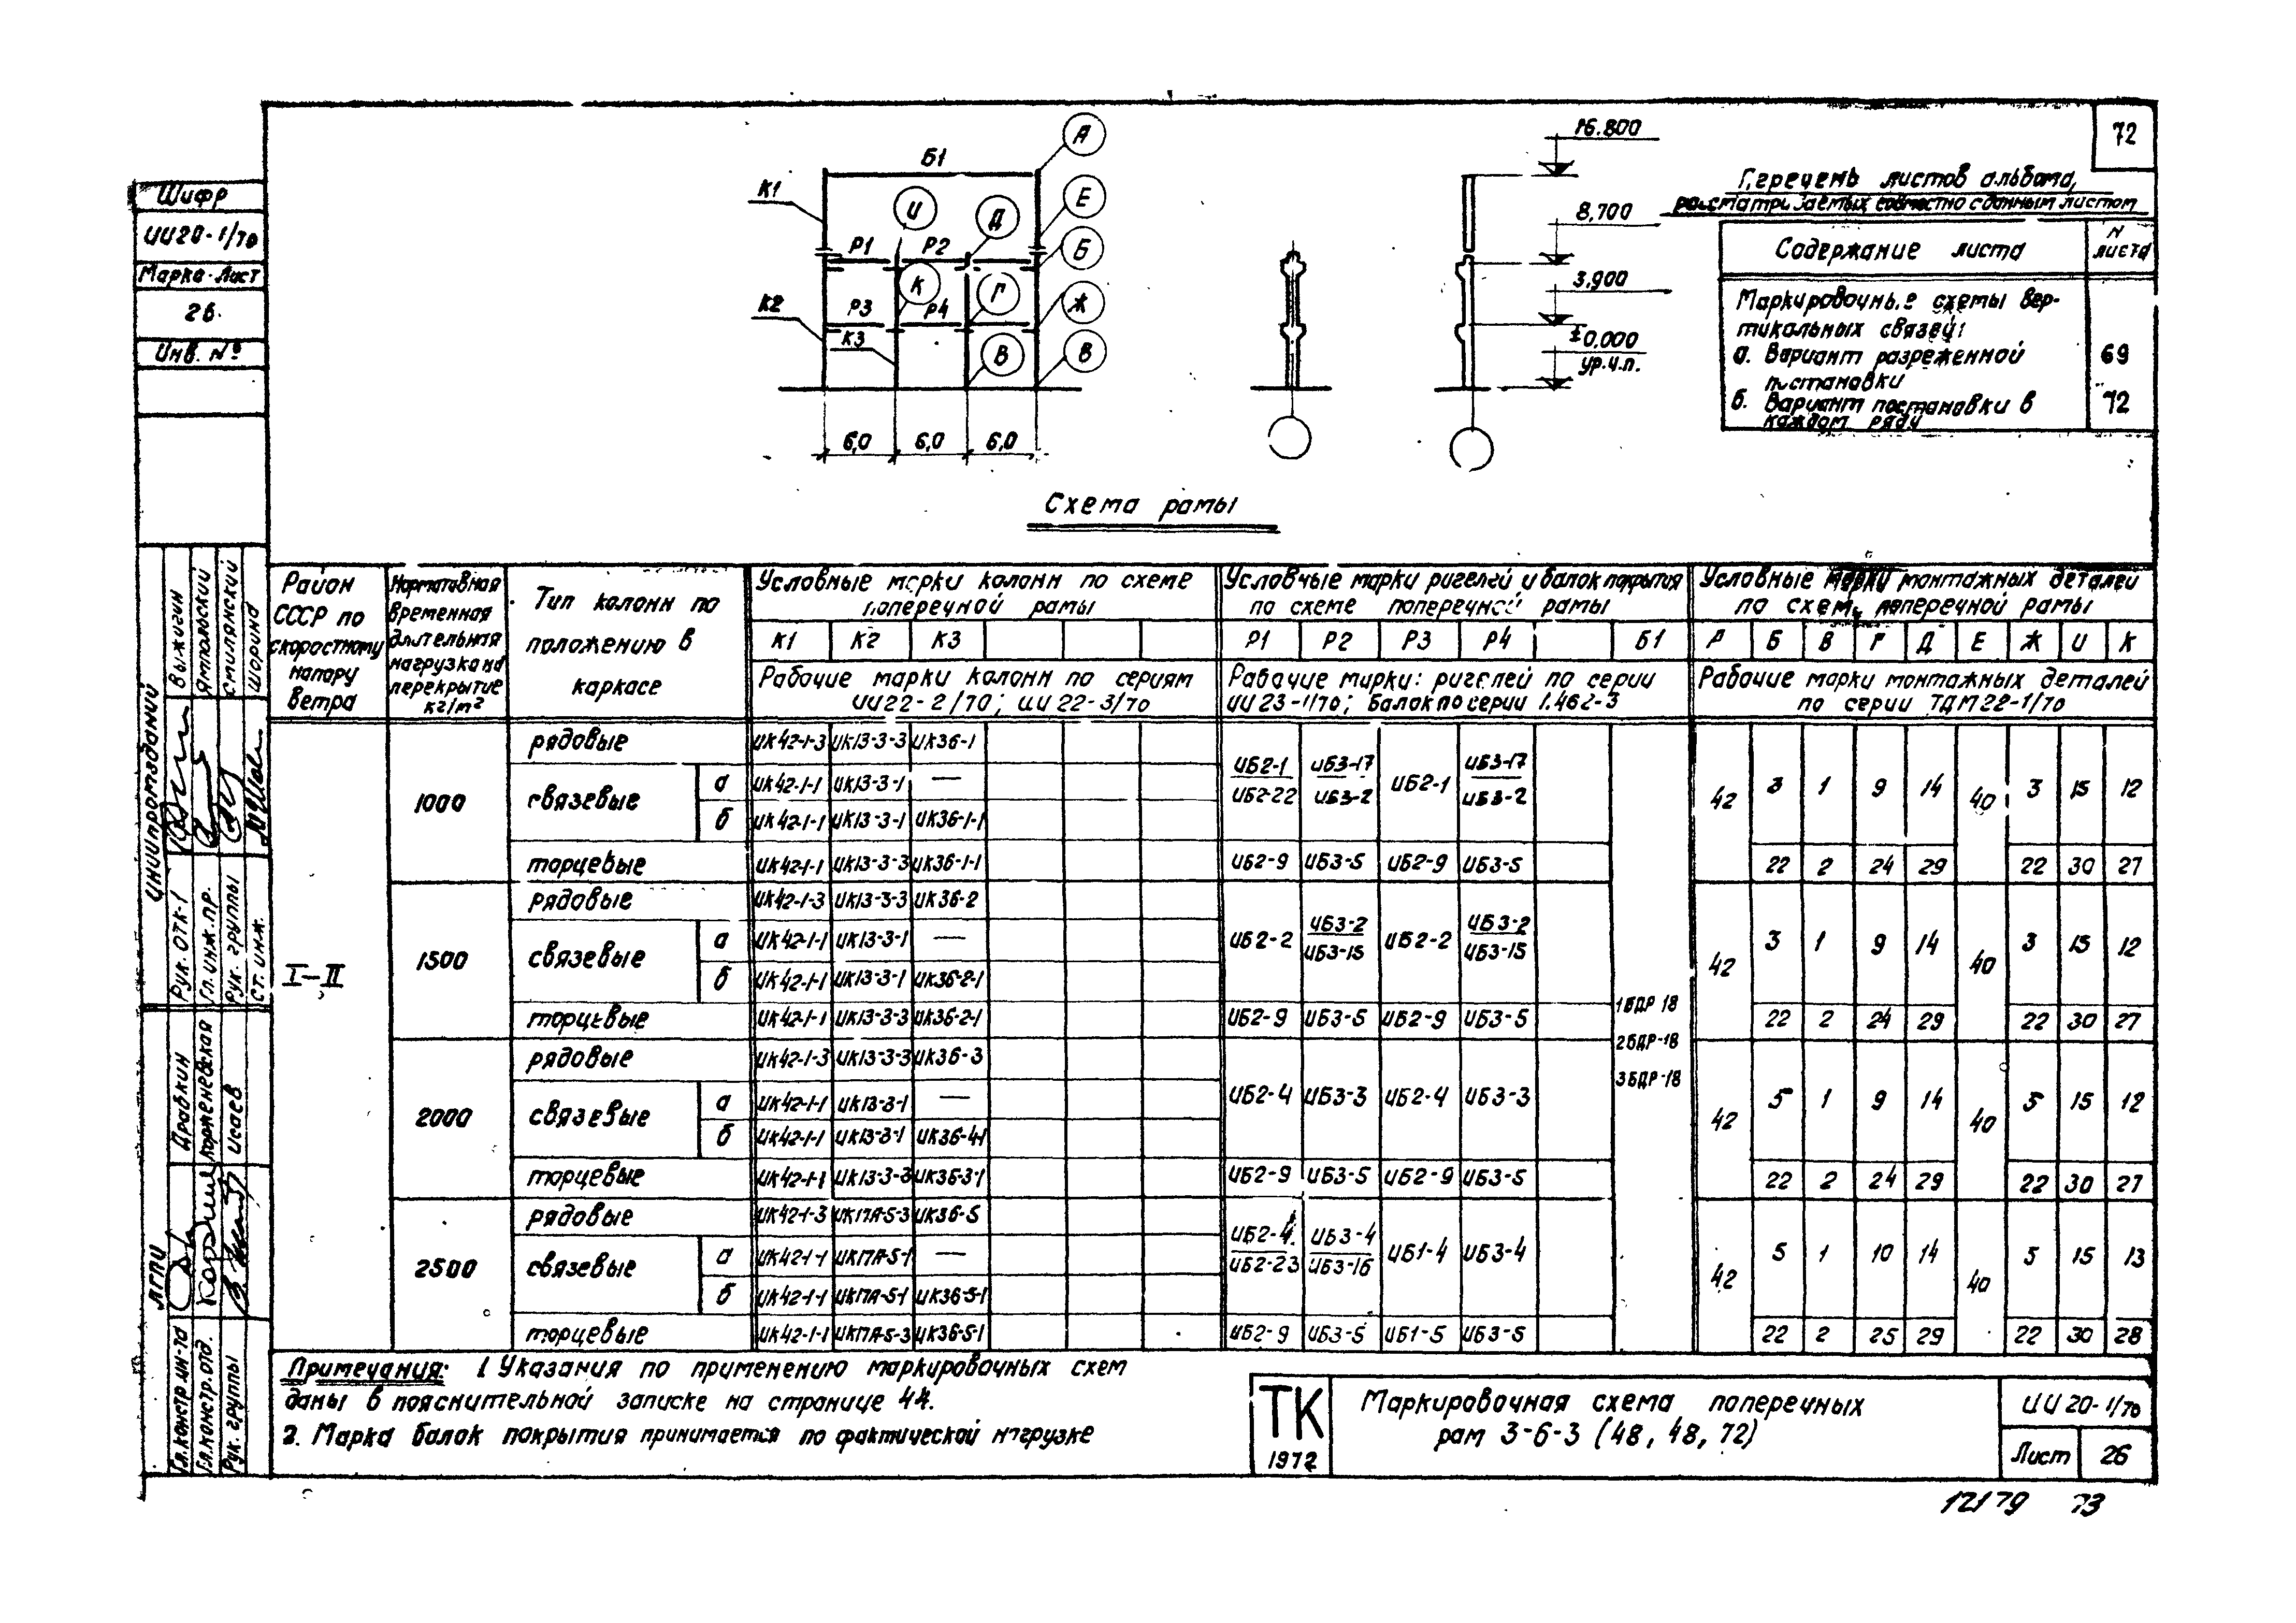 72
16.800
8,700
3,900
±0,000
ур.ч.п.
Б1
К1
К2
К3
Р1
Р2
Р3
Р4
А
Е
Б
Ж
В
И
Д
К
Г
В
6,0
6,0
6,0
Схема рамы
Перечень листов альбома,
рассматриваемых совместно с данным листом
Содержание листа
N листа
Маркировочные схемы вер-
тикальных связей:
а. Вариант разреженной 69
постановки
б. Вариант постановки в 72
каждом ряду
Шифр
ИИ20-1/70
Марка-Лист
26.
Инв. №
ЦНИИпромзданий
Рук. ОТК-1
Выжигин
Гл. инж. пр.
Ямпольский
Рук. группы
Смилянский
Ст. инж.
Шорина
ЛГПИ
Гл. констр. ин-та
Драбкин
Гл. констр. отд.
Корженевская
Рук. группы
Исаев
Район СССР по скоростному напору ветра
Нормативная временная длительная нагрузка на перекрытие кг/м²
Тип колонн по положению в каркасе
Условные марки колонн по схеме поперечной рамы
К1 К2 К3
Рабочие марки колонн по сериям
ИИ22-2/70; ИИ22-3/70
Условные марки ригелей и балок покрытия
по схеме поперечной рамы
Р1 Р2 Р3 Р4 Б1
Рабочие марки: ригелей по серии
ИИ23-1/70; балок по серии 1.462-3
Условные марки монтажных деталей
по схеме поперечной рамы
Р Б В Г Д Е Ж И К
Рабочие марки монтажных деталей
по серии ТДМ22-1/70
I-II
1000
рядовые ИК42-1-3 ИК13-3-3 ИК36-1
связевые
а ИК42-1-1 ИК13-3-1 —
б ИК42-1-1 ИК13-3-1 ИК36-1-1
ИБ2-1 ИБ3-17 ИБ2-1 ИБ3-17
ИБ2-22 ИБ3-2 ИБ3-2
42 3 1 9 14 40 3 15 12
торцевые ИК42-1-1 ИК13-3-3 ИК36-1-1 ИБ2-9 ИБ3-5 ИБ2-9 ИБ3-5 22 2 24 29 22 30 27
1500
рядовые ИК42-1-3 ИК13-3-3 ИК36-2
связевые
а ИК42-1-1 ИК13-3-1 —
б ИК42-1-1 ИК13-3-1 ИК36-2-1
ИБ2-2 ИБ3-2 ИБ2-2 ИБ3-2
ИБ3-15 ИБ3-15
42 3 1 9 14 40 3 15 12
торцевые ИК42-1-1 ИК13-3-3 ИК36-2-1 ИБ2-9 ИБ3-5 ИБ2-9 ИБ3-5 22 2 24 29 22 30 27
1БДР 18
2БДР-18
3БДР-18
2000
рядовые ИК42-1-3 ИК13-3-3 ИК36-3
связевые
а ИК42-1-1 ИК13-3-1 —
б ИК42-1-1 ИК13-3-1 ИК36-4-1
ИБ2-4 ИБ3-3 ИБ2-4 ИБ3-3
42 5 1 9 14 40 5 15 12
торцевые ИК42-1-1 ИК13-3-3 ИК36-3-1 ИБ2-9 ИБ3-5 ИБ2-9 ИБ3-5 22 2 24 29 22 30 27
2500
рядовые ИК42-1-3 ИК17А-5-3 ИК36-5
связевые
а ИК42-1-1 ИК17А-5-1 —
б ИК42-1-1 ИК17А-5-1 ИК36-5-1
ИБ2-4 ИБ3-4 ИБ1-4 ИБ3-4
ИБ2-23 ИБ3-16
42 5 1 10 14 40 5 15 13
торцевые ИК42-1-1 ИК17А-5-3 ИК36-5-1 ИБ2-9 ИБ3-5 ИБ1-5 ИБ3-5 22 2 25 29 22 30 28
Примечания: 1 Указания по применению маркировочных схем
даны в пояснительной записке на странице 44.
2. Марка балок покрытия принимается по фактической нагрузке
ТК
1972
Маркировочная схема поперечных
рам 3-6-3 (48, 48, 72)
ИИ20-1/70
Лист 26
12179 73